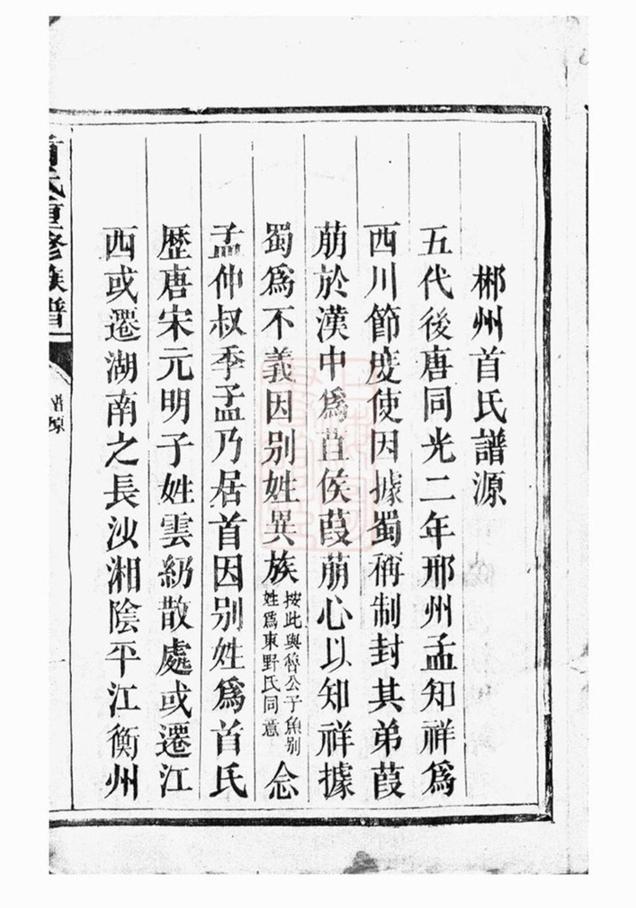 郴州首氏譜源
五代後唐同光二年邢州孟知祥爲
西川節度使因據蜀稱制封其弟葭
萠於漢中爲苴侯葭萠心以知祥據
蜀爲不義因别姓異族按此與魯公子魚别姓爲東野氏同意念
孟仲叔季孟乃居首因别姓爲首氏
歴唐宋元明子姓雲礽散處或遷江
西或遷湖南之長沙湘陰平江衡州
首氏重修族譜
譜源